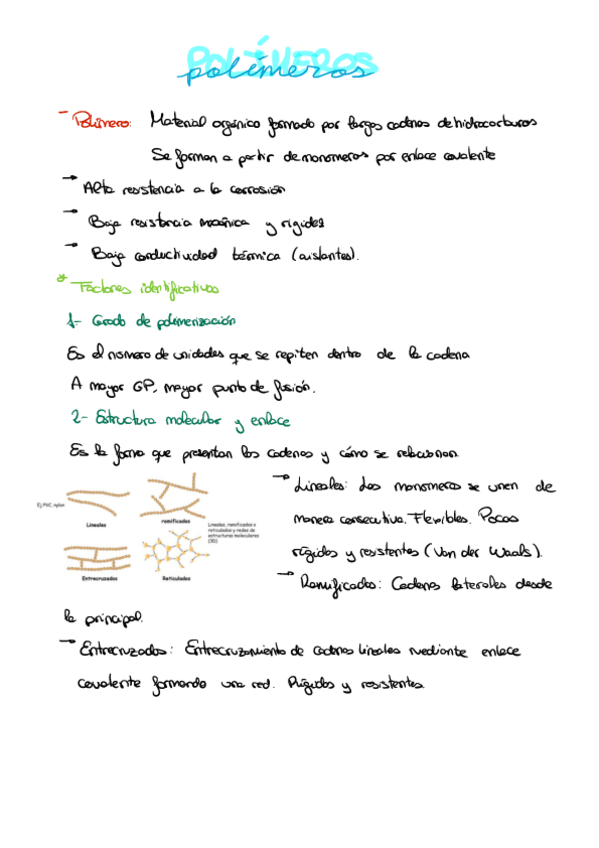 POLÍMEROS
polímeros
- Polímero: Material orgánico formado por largas cadenas de hidrocarburos
Se forman a partir de monomeros por enlace covalente
→ Alta resistencia a la corrosión
→ Baja resistencia mecánica y rigidez
→ Baja conductividad térmica (aislantes).
* Factores identificativos
1- Grado de polimerización
Es el número de unidades que se repiten dentro de la cadena
A mayor GP, mayor punto de fusión.
2- Estructura molecular y enlace
Es la forma que presentan las cadenas y cómo se relacionan
Ej PVC, nylon
Lineales
ramificados
Entrecruzados
Reticulados
Lineales, ramificados o
reticulados y redes de
estructuras moleculares
(3D)
→ Lineales: Los monomeros se unen de
manera consecutiva. Flexibles. Pocos
rígidos y resistentes (Van der Waals).
→ Ramificados: Cadenas laterales desde
la principal.
→ Entrecruzados: Entrecruzamiento de cadenas lineales mediante enlace
covalente formando una red. Rígidos y resistentes.